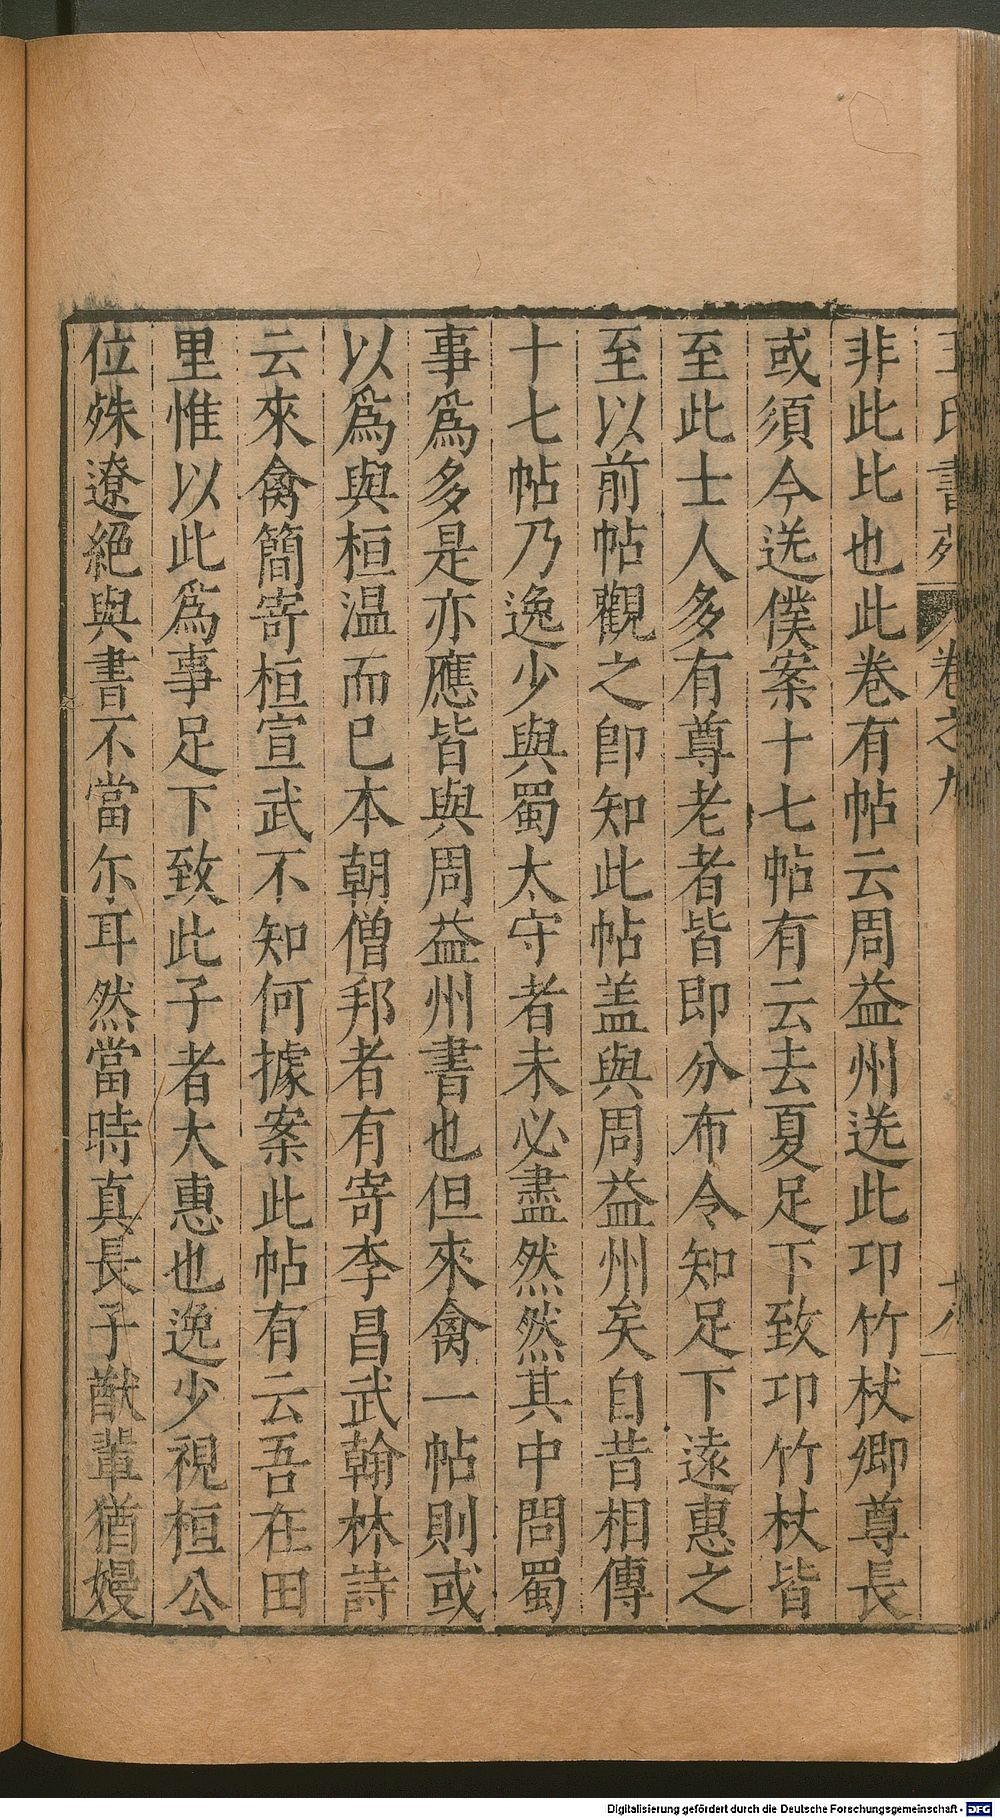 王氏書苑 卷之九 十八
非此比也此卷有帖云周益州送此卭竹杖卿尊長
或須今送僕案十七帖有云去夏足下致卭竹杖皆
至此士人多有尊老者皆即分布令知足下遠惠之
至以前帖觀之卽知此帖盖與周益州矣自昔相傳
十七帖乃逸少與蜀太守者未必盡然然其中問蜀
事爲多是亦應皆與周益州書也但來禽一帖則或
以爲與桓温而已本朝僧邦者有寄李昌武翰林詩
云來禽簡寄桓宣武不知何據案此帖有云吾在田
里惟以此爲事足下致此子者大惠也逸少視桓公
位殊遼絕與書不當尓耳然當時真長子猷輩猶嫚
Digitalisierung gefördert durch die Deutsche Forschungsgemeinschaft - DFG